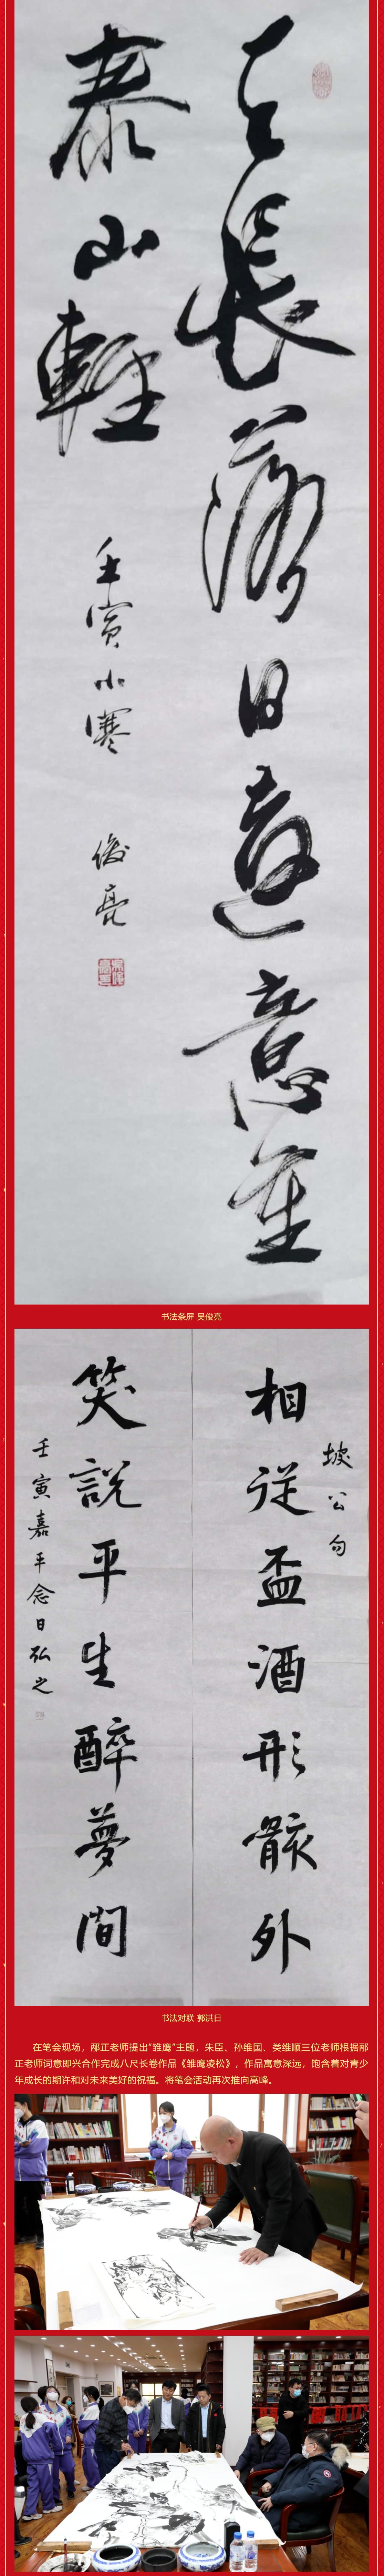 天長落日遠意重
泰山輕
壬寅小寒 俊亮
书法条屏 吴俊亮
坡公句
相從盃酒形骸外
笑説平生醉夢間
壬寅嘉平念日弘之
书法对联 郭洪日
在笔会现场，邴正老师提出“雏鹰”主题，朱臣、孙维国、类维顺三位老师根据邴
正老师词意即兴合作完成八尺长卷作品《雏鹰凌松》，作品寓意深远，饱含着对青少
年成长的期许和对未来美好的祝福。将笔会活动再次推向高峰。